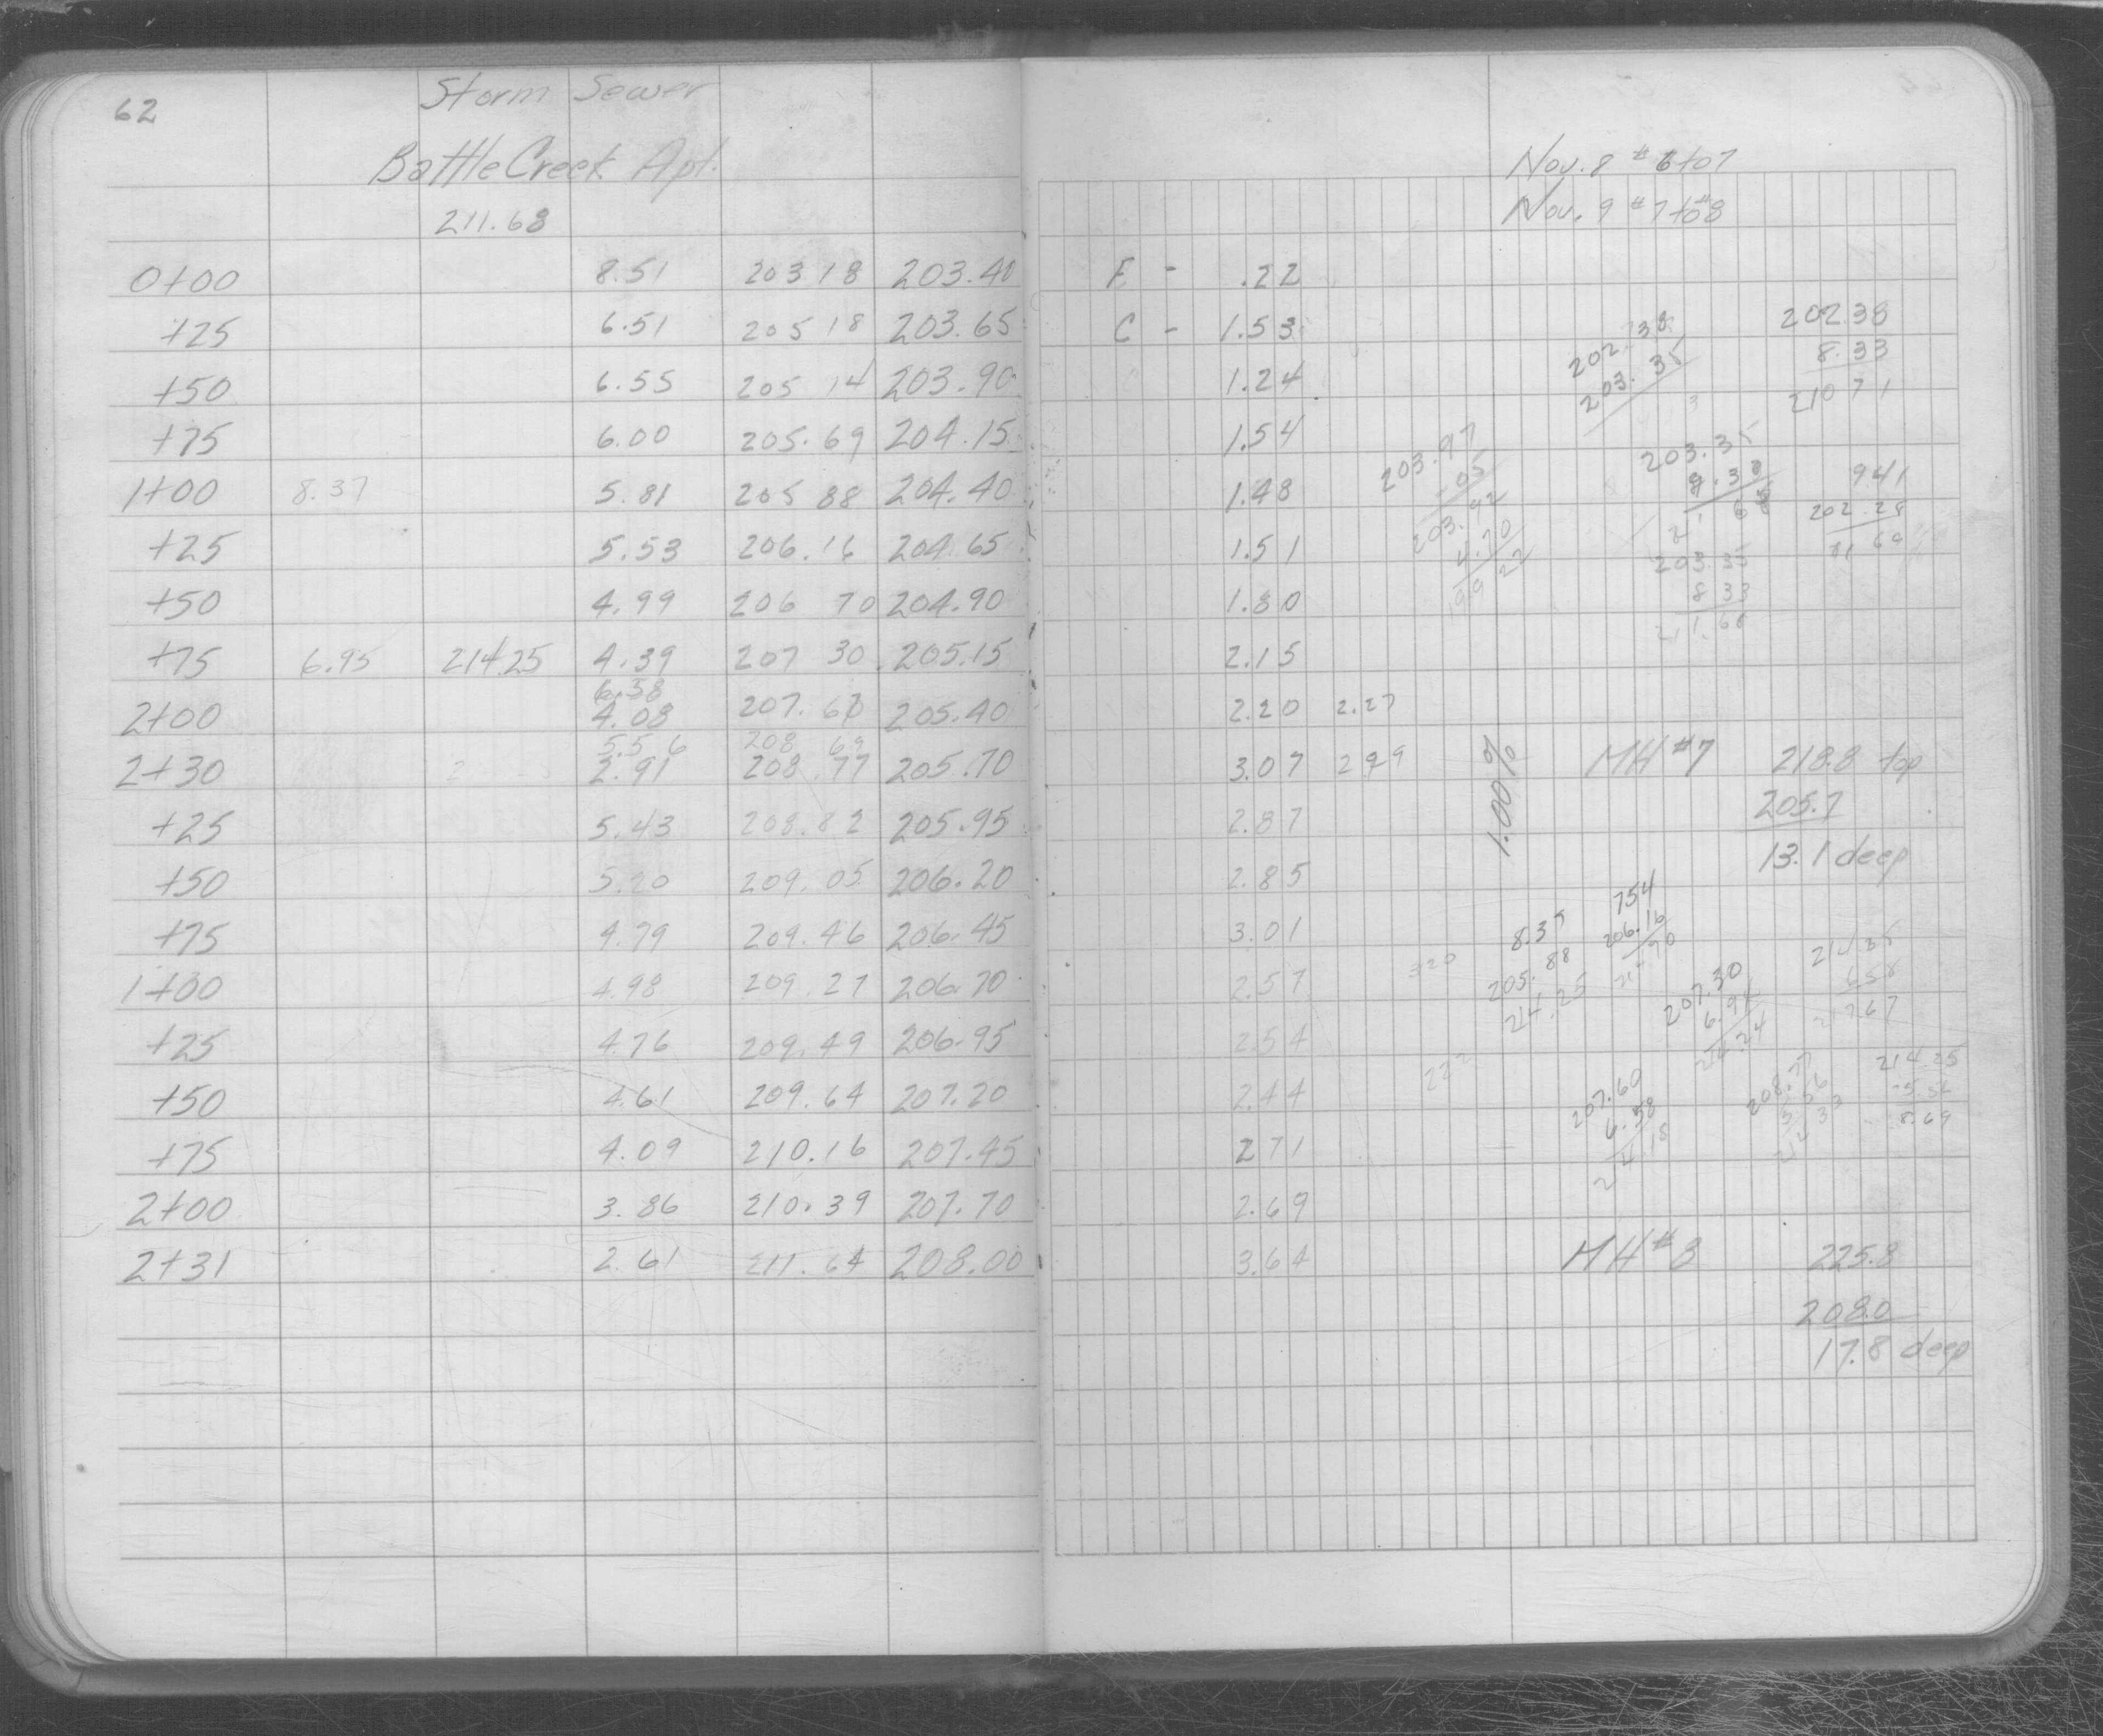 62
Storm Sewer
Battle Creek Apt.
211.68
0+00 8.51 203 18 203.40
+25 6.51 205 18 203.65
+50 6.55 205 14 203.90
+75 6.00 205.69 204.15
1+00 8.37 5.81 205 88 204.40
+25 5.53 206.16 204.65
+50 4.99 206 70 204.90
+75 6.95 214.25 4.39 207 30 205.15
6.58
2+00 4.08 207.60 205.40
5.56 208 69
2+30 2.91 208.77 205.70
+25 5.43 208.82 205.95
+50 5.20 209.05 206.20
+75 4.79 209.46 206.45
1+00 4.98 209.27 206.70
+25 4.76 209.49 206.95
+50 4.61 209.64 207.20
+75 4.09 210.16 207.45
2+00 3.86 210.39 207.70
2+31 2.61 211.64 208.00
Nov. 8 #6 to 7
Nov. 9 #7 to #8
F - .22
C - 1.53
1.24
1.54
1.48
1.51
1.80
2.15
2.20 2.27
3.07 2.99
2.87
2.85
3.01
2.57
2.54
2.44
2 71
2.69
3.64
202.38
203.35
202 38
8.33
210 71
203.97
.05
203.92
4.70
99 22
203.35
941
202.28
203.35
8 33
211.68
1.00%
MH #7 218.8 top
205.7
13.1 deep
754
206.16
8.37
205.88
214.25
320
207.30
6.94
214.24
222
207.60
6.58
208.77
5 56
214.25
-5.56
8.69
MH #8 225.8
208.0
17.8 deep